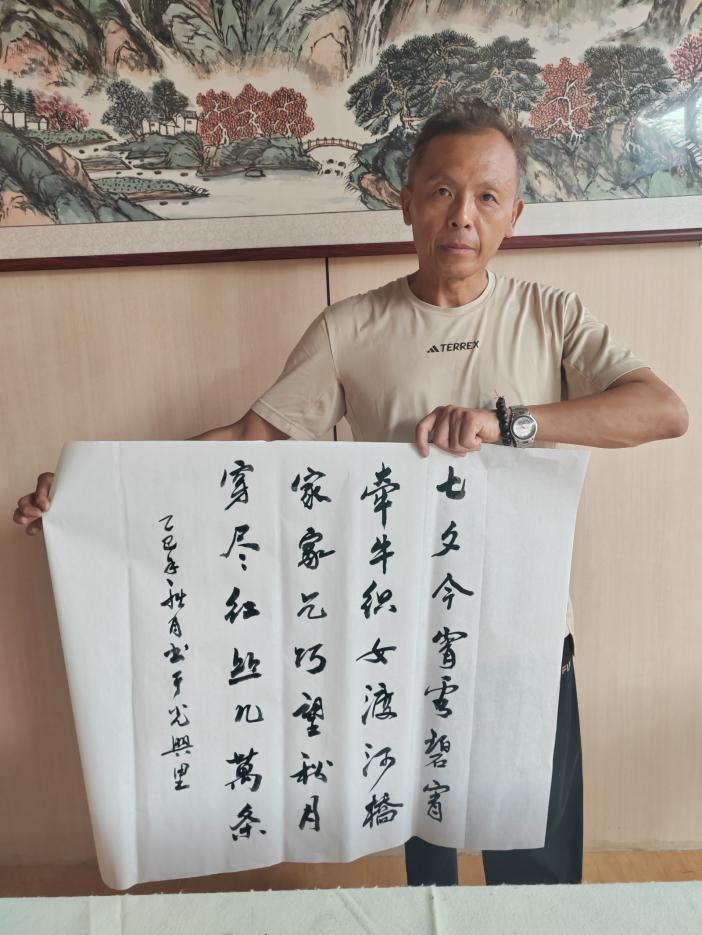 TERREX
七夕今宵看碧宵
牽牛织女渡河橋
家家乞巧望秋月
穿尽红丝几萬条
乙巳年秋月书于光興里